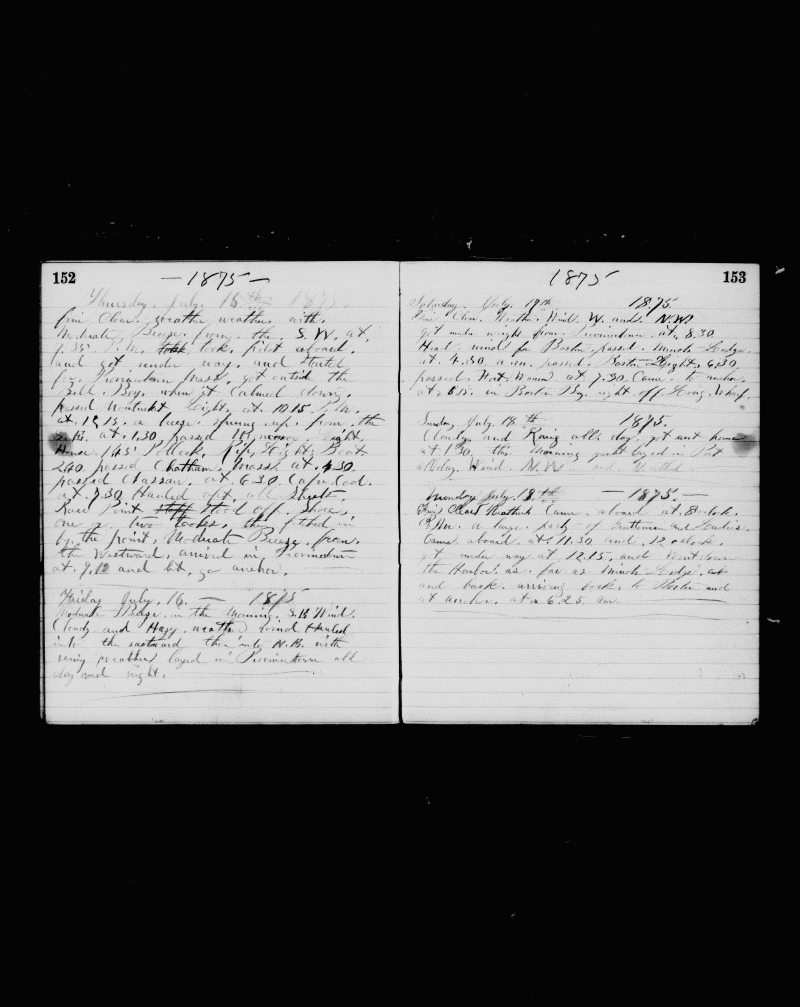 152
— 1875 —
Thursday, July, 15th 1875
fine Clear, weather weather with
Moderate Breeze, from the S. W. at,
P.M. took took, pilot aboard,
and got under way, and started
for, Provincetown Mass, got outside the
Bell Boy, when it Calmed down,
passed Nantucket Light, at 10.15 P.M.
at, a breeze sprung up, from, the
at, 1.30 passed Light,
House, 1.45 Pollock, Rip, Light, Boat
2.40 passed Chatham, Mass, at, 4.30
passed at, 6.30, Cape Cod.
at, 7.30 Hauled aft, all Sheets,
Race Point Stood off, Shore,
one or, two tackes, then fetched in
by, the point, Moderate Breeze, from,
the Westward, arrived in, Provincetown
at, 9.12 and let, go anchor,
Friday July, 16, — 1875
Moderate Breeze, in the Morning, Wind,
Cloudy and Hazy, weather, wind Hauled
into the eastward then with
rainy weather layed in Provincetown all
day and night.
1875
153
Saturday, July, 17th 1875.
Fine, Clear, Weather, Wind, W. and, N.W.
got under weight from, Provincetown at, 8.30
Head, wind for Boston, passed, Minots Ledge,
at, 4.30, passed, Boston Light, 6.30
passed, at, 7.30, Came, to anchor,
at, in Boston right off Long, Wharf,
Sunday July, 18th, 1875.
Cloudy, and Rainy all, day,
at 1.30, this Morning layed in Port
all day, Wind, N.W. and
Monday July, — 1875. —
Fine Clear Came, aboard at, 8
a large, party of Gentlemen and Ladies
Came, aboard, at, 11.30 and, 12, oclock,
got under way at 12.15, and went down
the Harbor, as, far as Minots Ledge,
and back, arriving, back, to Boston and
at anchor, at 6.25,